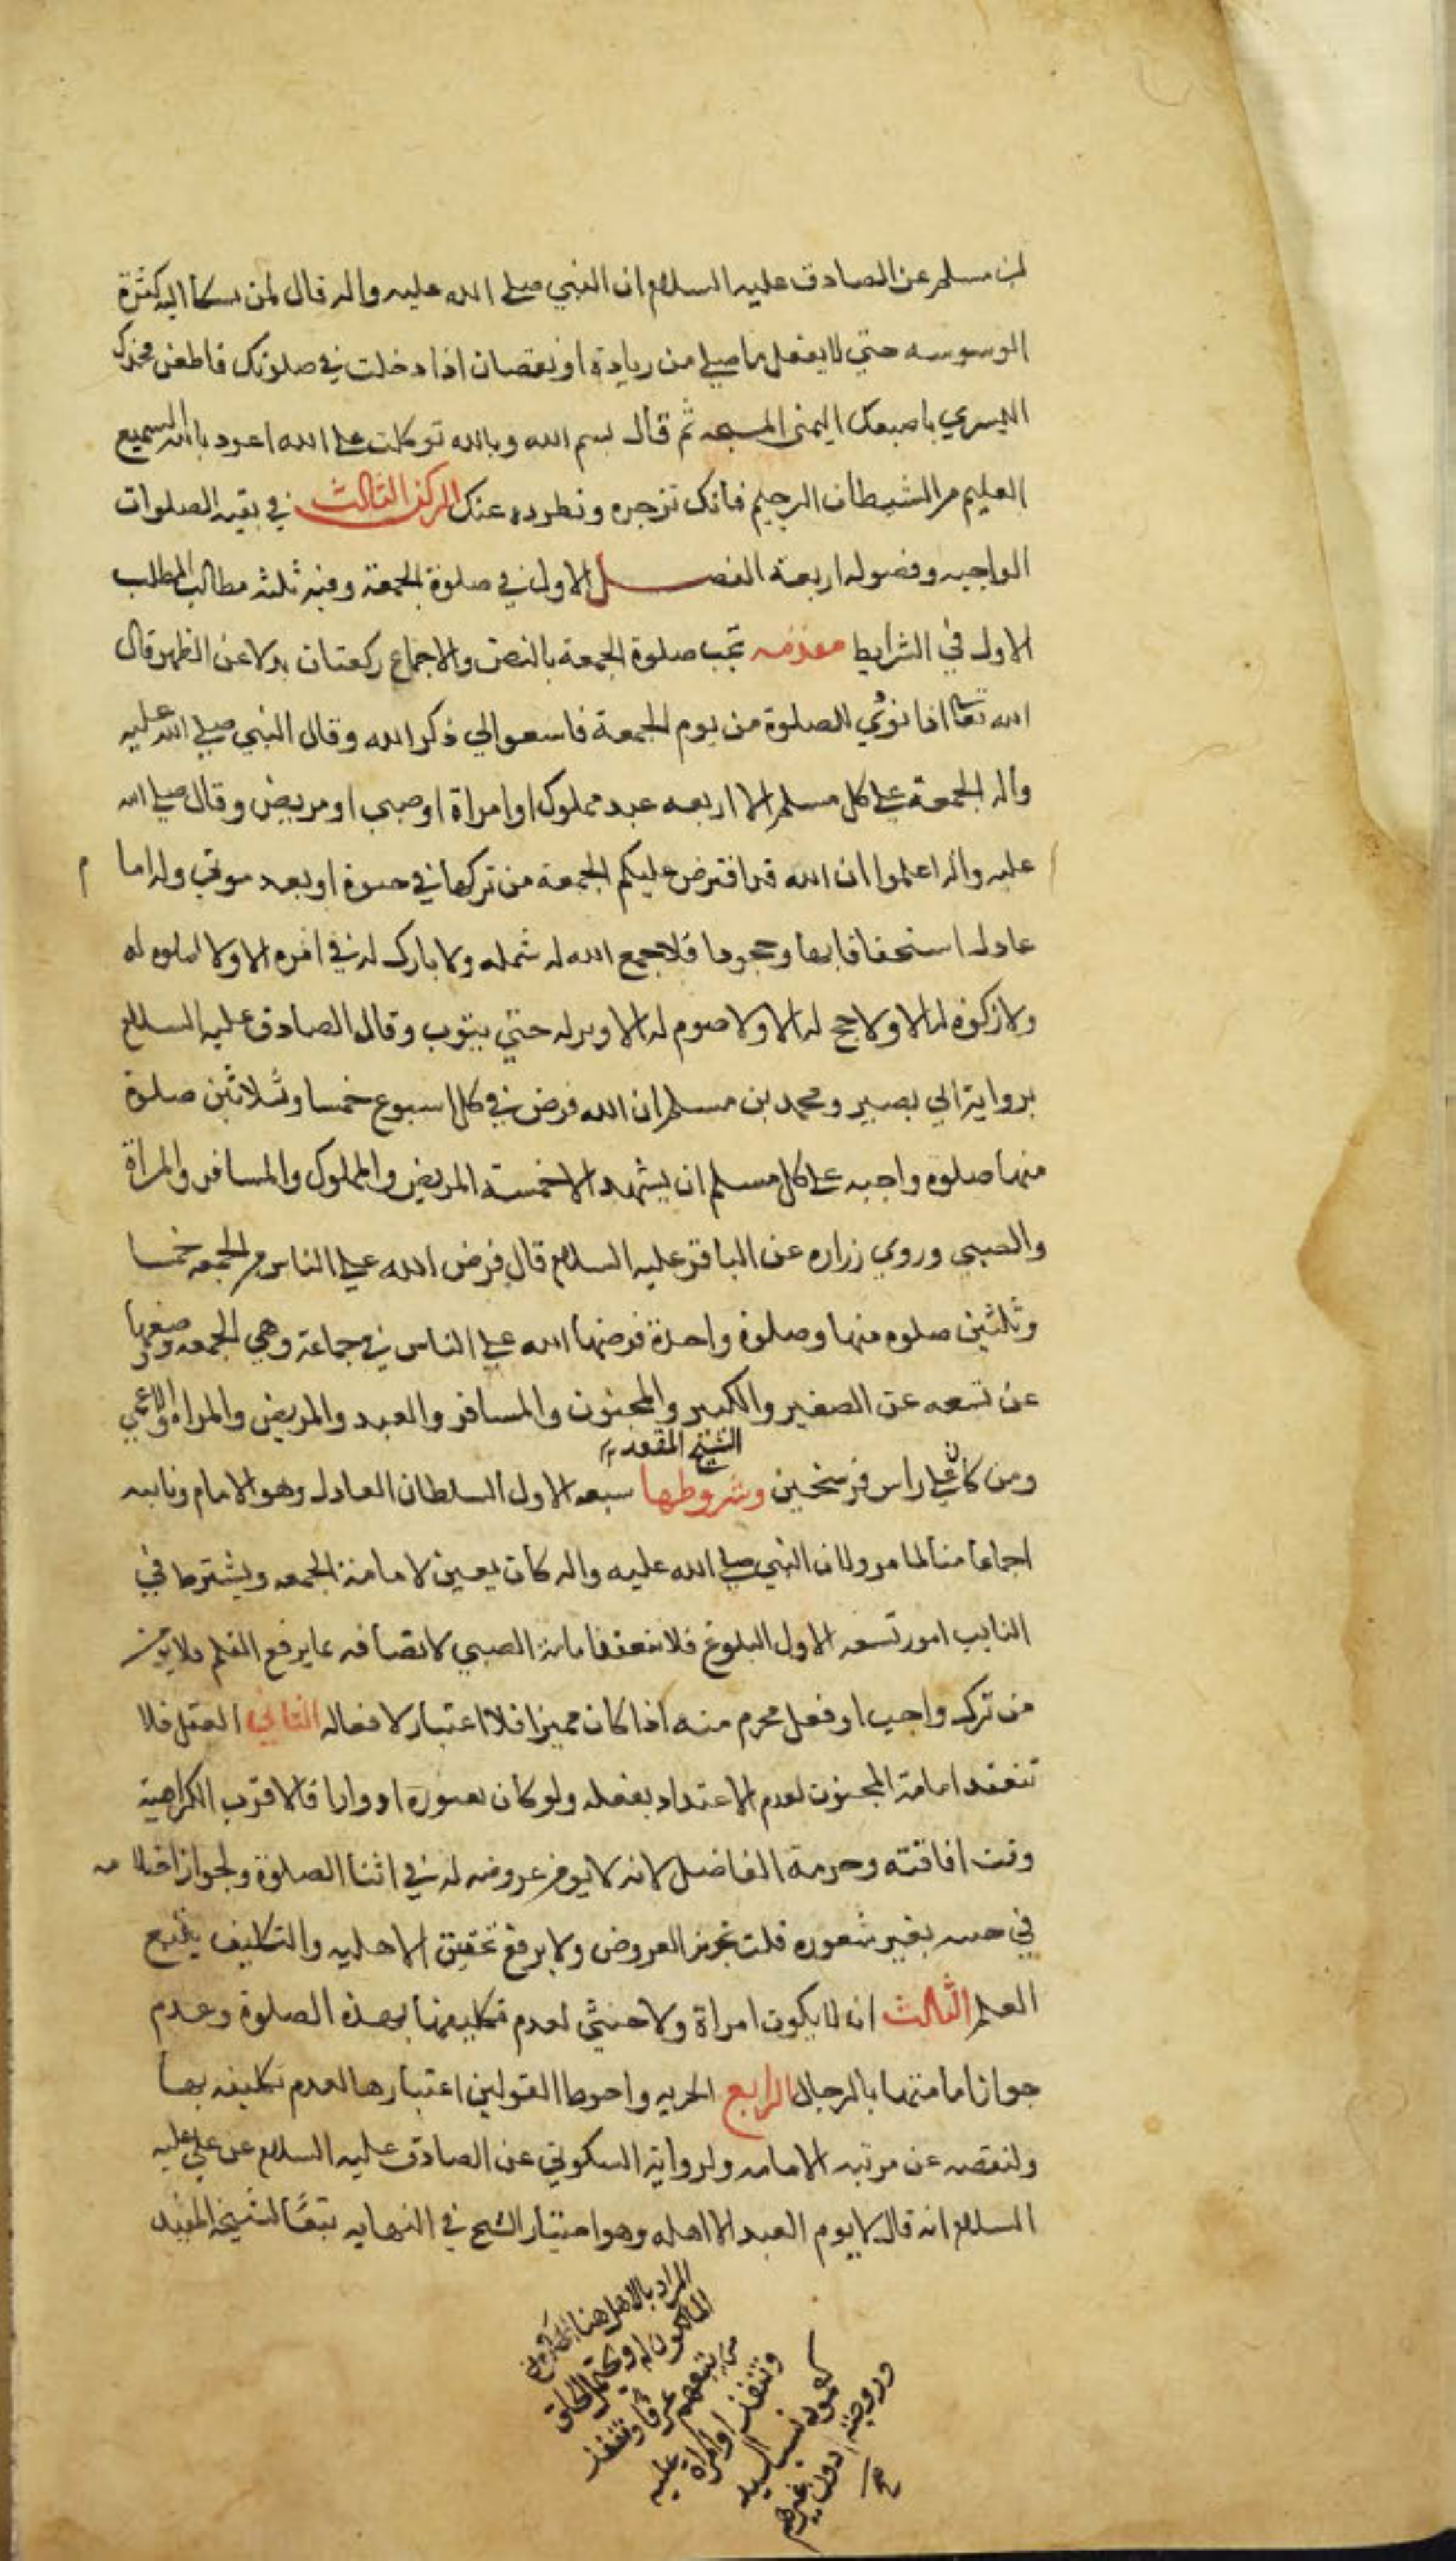 بن مسلم عن الصادق عليه السلام ان النبي صلى الله عليه واله قال لمن شكا اليه كثرة
الوسوسه حتى لا يعقل ما صلى من زيادة او نقصان اذا دخلت في صلوتك فاطعن فخذك
اليسرى باصبعك اليمنى المسبحه ثم قال بسم الله وبالله توكلت على الله اعوذ بالله السميع
العليم من الشيطان الرجيم فانك تزجره وتطرده عنك الركن الثالث في بقيه الصلوات
الواجبه وفصوله اربعة الفصل الاول في صلوة الجمعة وفيه ثلثه مطالب المطلب
الاول في الشرايط مقدمه تجب صلوة الجمعة بالنص والاجماع ركعتان بدلا عن الظهر قال
الله تعالى اذا نودي للصلوة من يوم الجمعة فاسعوا الى ذكر الله وقال النبي صلى الله عليه
واله الجمعة على كل مسلم الا اربعه عبد مملوك او امراة او صبي او مريض وقال صلى الله
عليه واله اعلموا ان الله قد افترض عليكم الجمعة من تركها في حيوة او بعد موتي وله امام
عادل استخفافا بها وجحودا فلا جمع الله له شمله ولا بارك له في امره الا ولا صلوه له
ولا زكوة له الا ولا حج له الا ولا صوم له الا وبر له حتى يتوب وقال الصادق عليه السلام
برواية ابي بصير ومحمد بن مسلم ان الله فرض في كل اسبوع خمسا وثلاثين صلوة
منها صلوه واجبه على كل مسلم ان يشهد الا خمسة المريض والمملوك والمسافر والمراة
والصبي وروى زراره عن الباقر عليه السلام قال فرض الله على الناس من الجمعه خمسا
وثلثين صلوه منها وصلوة واحدة فرضها الله على الناس في جماعة وهي الجمعه وضعها
عن تسعه عن الصغير والكبير والمجنون والمسافر والعبد والمريض والمراه والاعمى
الشيخ المقعد
ومن كان على راس فرسخين وشروطها سبعه الاول السلطان العادل وهو الامام ونايبه
اجماعا منا لما مر ولان النبي صلى الله عليه واله كان يعين لامامة الجمعه ويشترط في
النايب امور تسعه الاول البلوغ فلا تنعقد امامة الصبي لاتصافه بما يرفع القلم فلا يؤمن
من ترك واجب او فعل محرم منه اذا كان مميزا فلا اعتبار لافعاله الثاني العقل فلا
تنعقد امامة المجنون لعدم الاعتداد بفعله ولو كان يعتوره ادوارا فالاقرب الكراهية
وقت افاقته وحرمة الفاضل لانه لا يؤمن عروضه له في اثنا الصلوة ولجواز احتلامه
في حينه بغير شعوره قلت تجويز العروض ولا يرفع تحقيق الاهليه والتكليف يتبع
العلم الثالث ان لا يكون امراة ولا خنثى لعدم تكليفهما بهذه الصلوة وعدم
جواز امامتهما بالرجال الرابع الحريه واحوط القولين اعتبارها لعدم تكليفه بها
ولنقصه عن مرتبه الامامه ولرواية السكوني عن الصادق عليه السلام عن علي عليه
السلام انه قال لا يوم العبد الا اهله وهو اختيار الشيخ في النهايه تبعا لشيخه المفيد
المراد بالاهل هنا
المالكون له ويحتمل
تبعهم عرفا وتنفذ
وتنفذ اوامره عليه
نسب السيد
وزوجته دون غيرهم